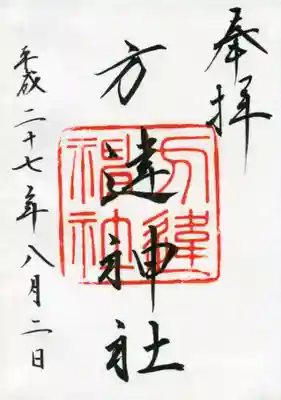 奉拝
方違神社
方違神社
平成二十七年八月二日